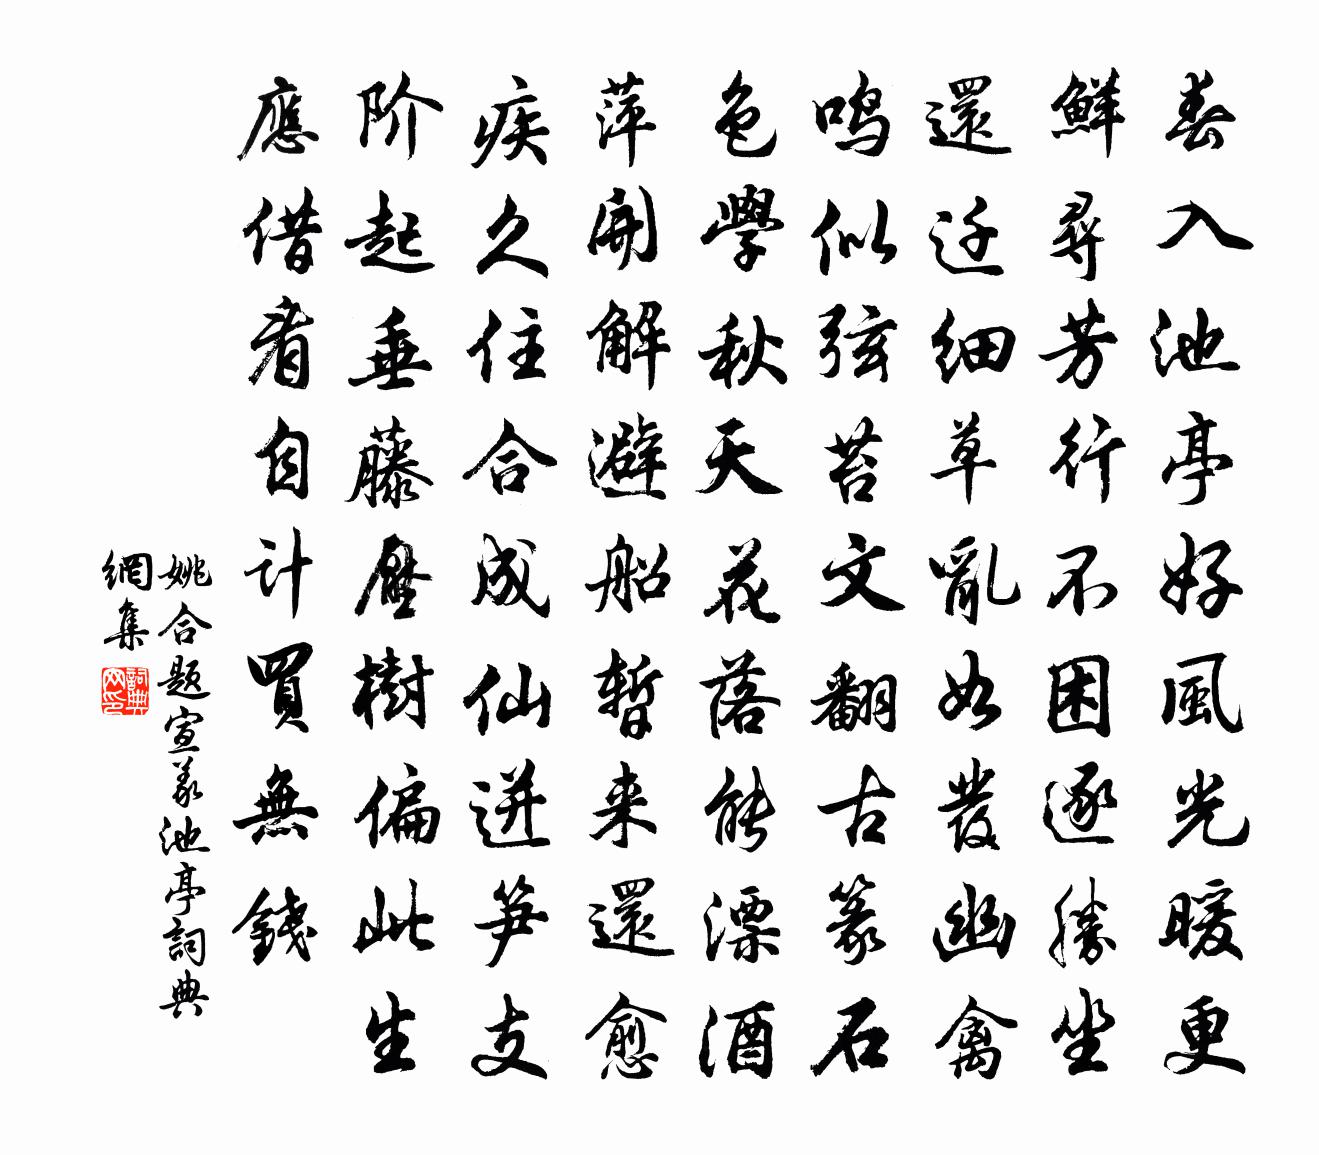 春入池亭好風光暖更
鮮尋芳行不困逐勝坐
還迁细草亂如發幽禽
鸣似弦苔文翻古篆石
色學秋天花落能漂酒
萍開解避船暫来還愈
疾久住合成仙迸笋支
阶起垂藤壓樹偏此生
應借看自计買無錢
姚合题宣義池亭詞典
網集
詞典網印